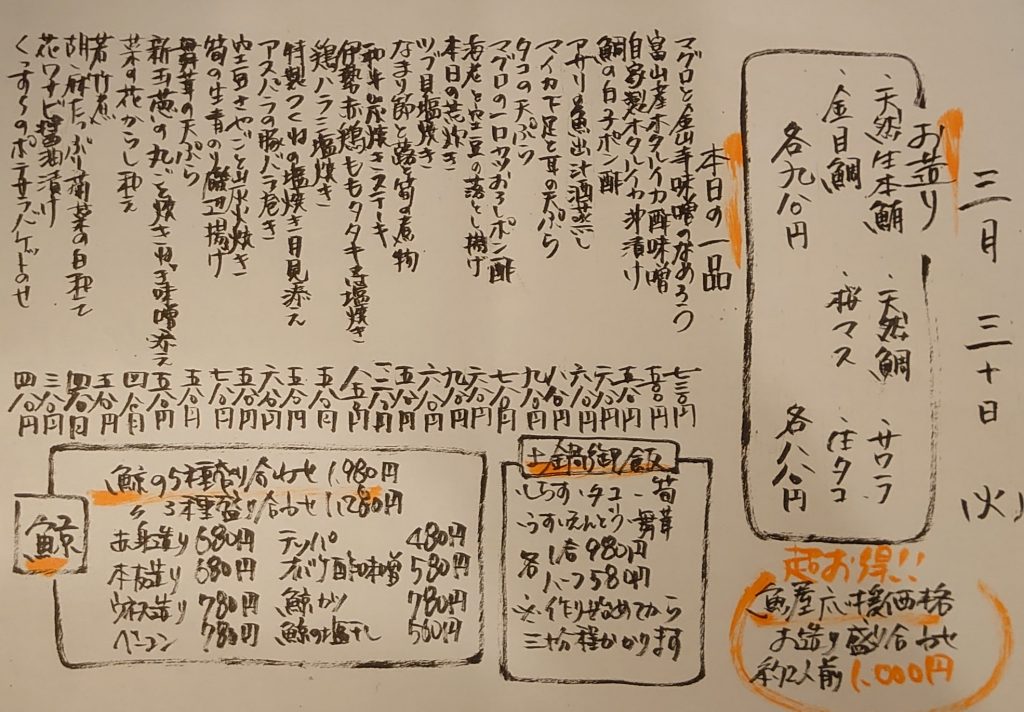 三月三十日(火)
お造り
・天然生本鮪
・金目鯛
各九八〇円
・天然鯛
・桜マス
・サワラ
・生タコ
各八八〇円
超お得!!
魚屋応援価格
お造り盛り合わせ
約2人前 1,000円
本日の一品
マグロと金山寺味噌のなめろう 七三〇円
富山産ホタルイカ酢味噌 五八〇円
自家製ホタルイカ沖漬け 五八〇円
鯛の白子ポン酢 六八〇円
アサリと魚出汁酒蒸し 六八〇円
マイカ下足と耳の天ぷら 八八〇円
タコの天ぷら 九八〇円
マグロのほ〇カツおろしポン酢
海老と空豆の落とし揚げ
本日の荒炊き
ツブ貝塩焼き
なまり節と蕗と筍の煮物
和牛炭焼きステーキ
伊勢赤鶏ももタタキ又は塩焼き
鶏ハラミ塩焼き
特製つくねの塩焼き月見添え
アスパラの豚バラ巻き
空豆さやごと炭火焼き
筍の生青のり磯辺揚げ
舞茸の天ぷら
新玉葱の丸ごと焼きねぎ味噌添え
菜の花からし和え
若竹煮
胡麻たっぷり菊菜の白和え
花ワサビ醤油漬け 三八〇円
くっすらのポテサラバゲットのせ 四八〇円
土鍋御飯
・しらす・タコ・筍
・うすいえんどう・舞茸
各 1合 980円
ハーフ 580円
※作り始めてから
三十分程かかります
鯨
鯨の5種盛り合わせ 1,980円
〃 3種盛り合わせ 1,280円
赤身造り 680円
本皮造り 680円
ウネス造り 780円
ベーコン 780円
テッパ 480円
オバケ酢味噌 580円
鯨カツ 780円
鯨の塩干し 500円